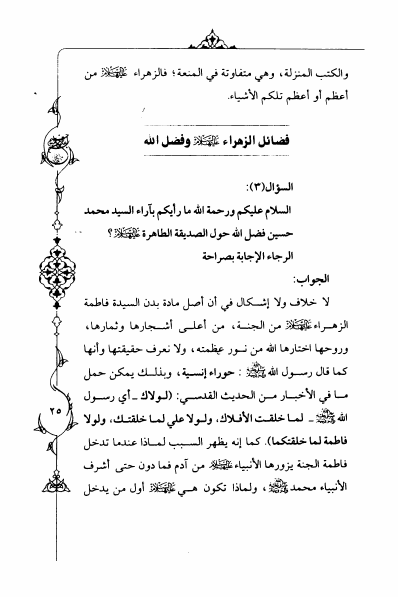 والكتب المنزلة، وهي متفاوتة في المنعة؛ فالزهراء عليها السلام من
أعظم أو أعظم تلكم الأشياء.
فضائل الزهراء عليها السلام وفضل الله
السؤال (٣):
السلام عليكم ورحمة الله ما رأيكم بآراء السيد محمد
حسين فضل الله حول الصديقة الطاهرة عليها السلام؟
الرجاء الإجابة بصراحة
الجواب:
لا خلاف ولا إشكال في أن أصل مادة بدن السيدة فاطمة
الزهراء عليها السلام من الجنة، من أعلى أشجارها وثمارها،
وروحها اختارها الله من نور عظمته، ولا نعرف حقيقتها وأنها
كما قال رسول الله ﷺ: حوراء إنسية، وبذلك يمكن حمل
ما في الأخبار من الحديث القدسي: (لولاك ـ أي رسول
الله ﷺ ـ لما خلقت الأفلاك، ولولا علي لما خلقتك، ولولا
فاطمة لما خلقتكما). كما إنه يظهر السبب لماذا عندما تدخل
فاطمة الجنة يزورها الأنبياء عليهم السلام من آدم فما دون حتى أشرف
الأنبياء محمد ﷺ، ولماذا تكون هي عليها السلام أول من يدخل
٢٥